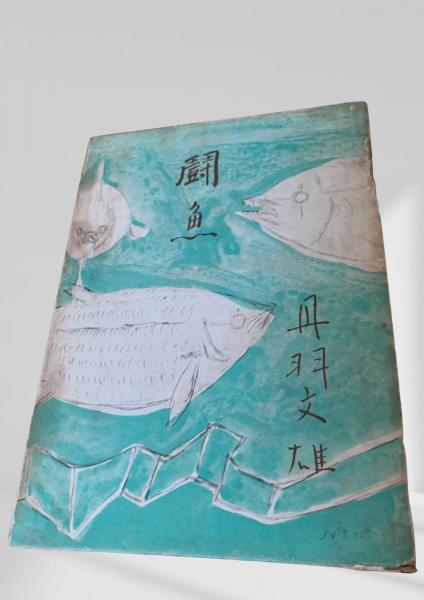 鬪魚
丹羽文雄